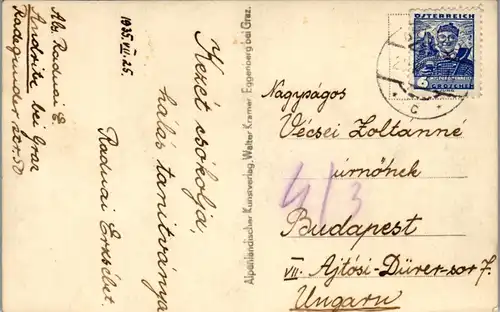 Abs. Radnai E.
Andritz bei Graz
Radegunder 20r.50
1935.VII.25.
Kezét csókolja,
hálás tanítványa
Radnai Erzsébet.
Alpenländischer Kunstverlag, Walter Kramer, Eggenberg bei Graz.
ÖSTERREICH
6 GROSCHEN
C
Nagyságos
Vécsei Zoltánné
úrnőnek
4/3
Budapest
VII. Ajtósi-Dürer-sor 7.
Ungarn